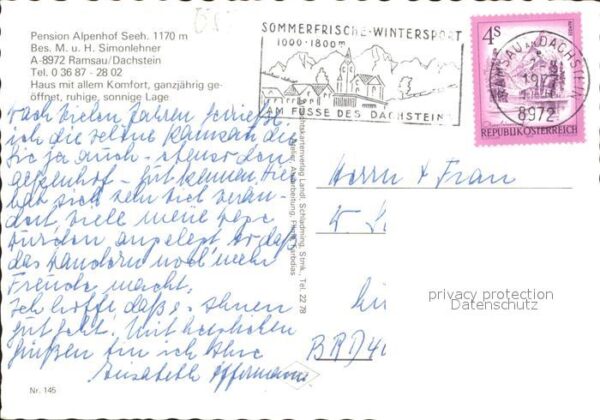 Pension Alpenhof Seeh. 1170 m
Bes. M. u. H. Simonlehner
A-8972 Ramsau/Dachstein
Tel. 0 36 87 - 28 02
Haus mit allem Komfort, ganzjährig ge-
öffnet, ruhige, sonnige Lage
SOMMERFRISCHE-WINTERSPORT
1000-1800m
AM FUSSE DES DACHSTEIN
4S
REPUBLIK ÖSTERREICH
RAMSAU AM DACHSTEIN
8972
Nach vielen Jahren
ich die schöne Ramsau die
Sie ja auch - ebenso den
- gut kennen. Hier
hat sich sehr viel verän-
dert, viele neue Wege
wurden angelegt so daß
das Wandern noch mehr
Freude macht.
Ich hoffe daß es Ihnen
gut geht. Mit herzlichen
Grüßen bin ich Ihre
Elisabeth
Herrn & Frau
BRD
privacy protection
Datenschutz
Nr. 145